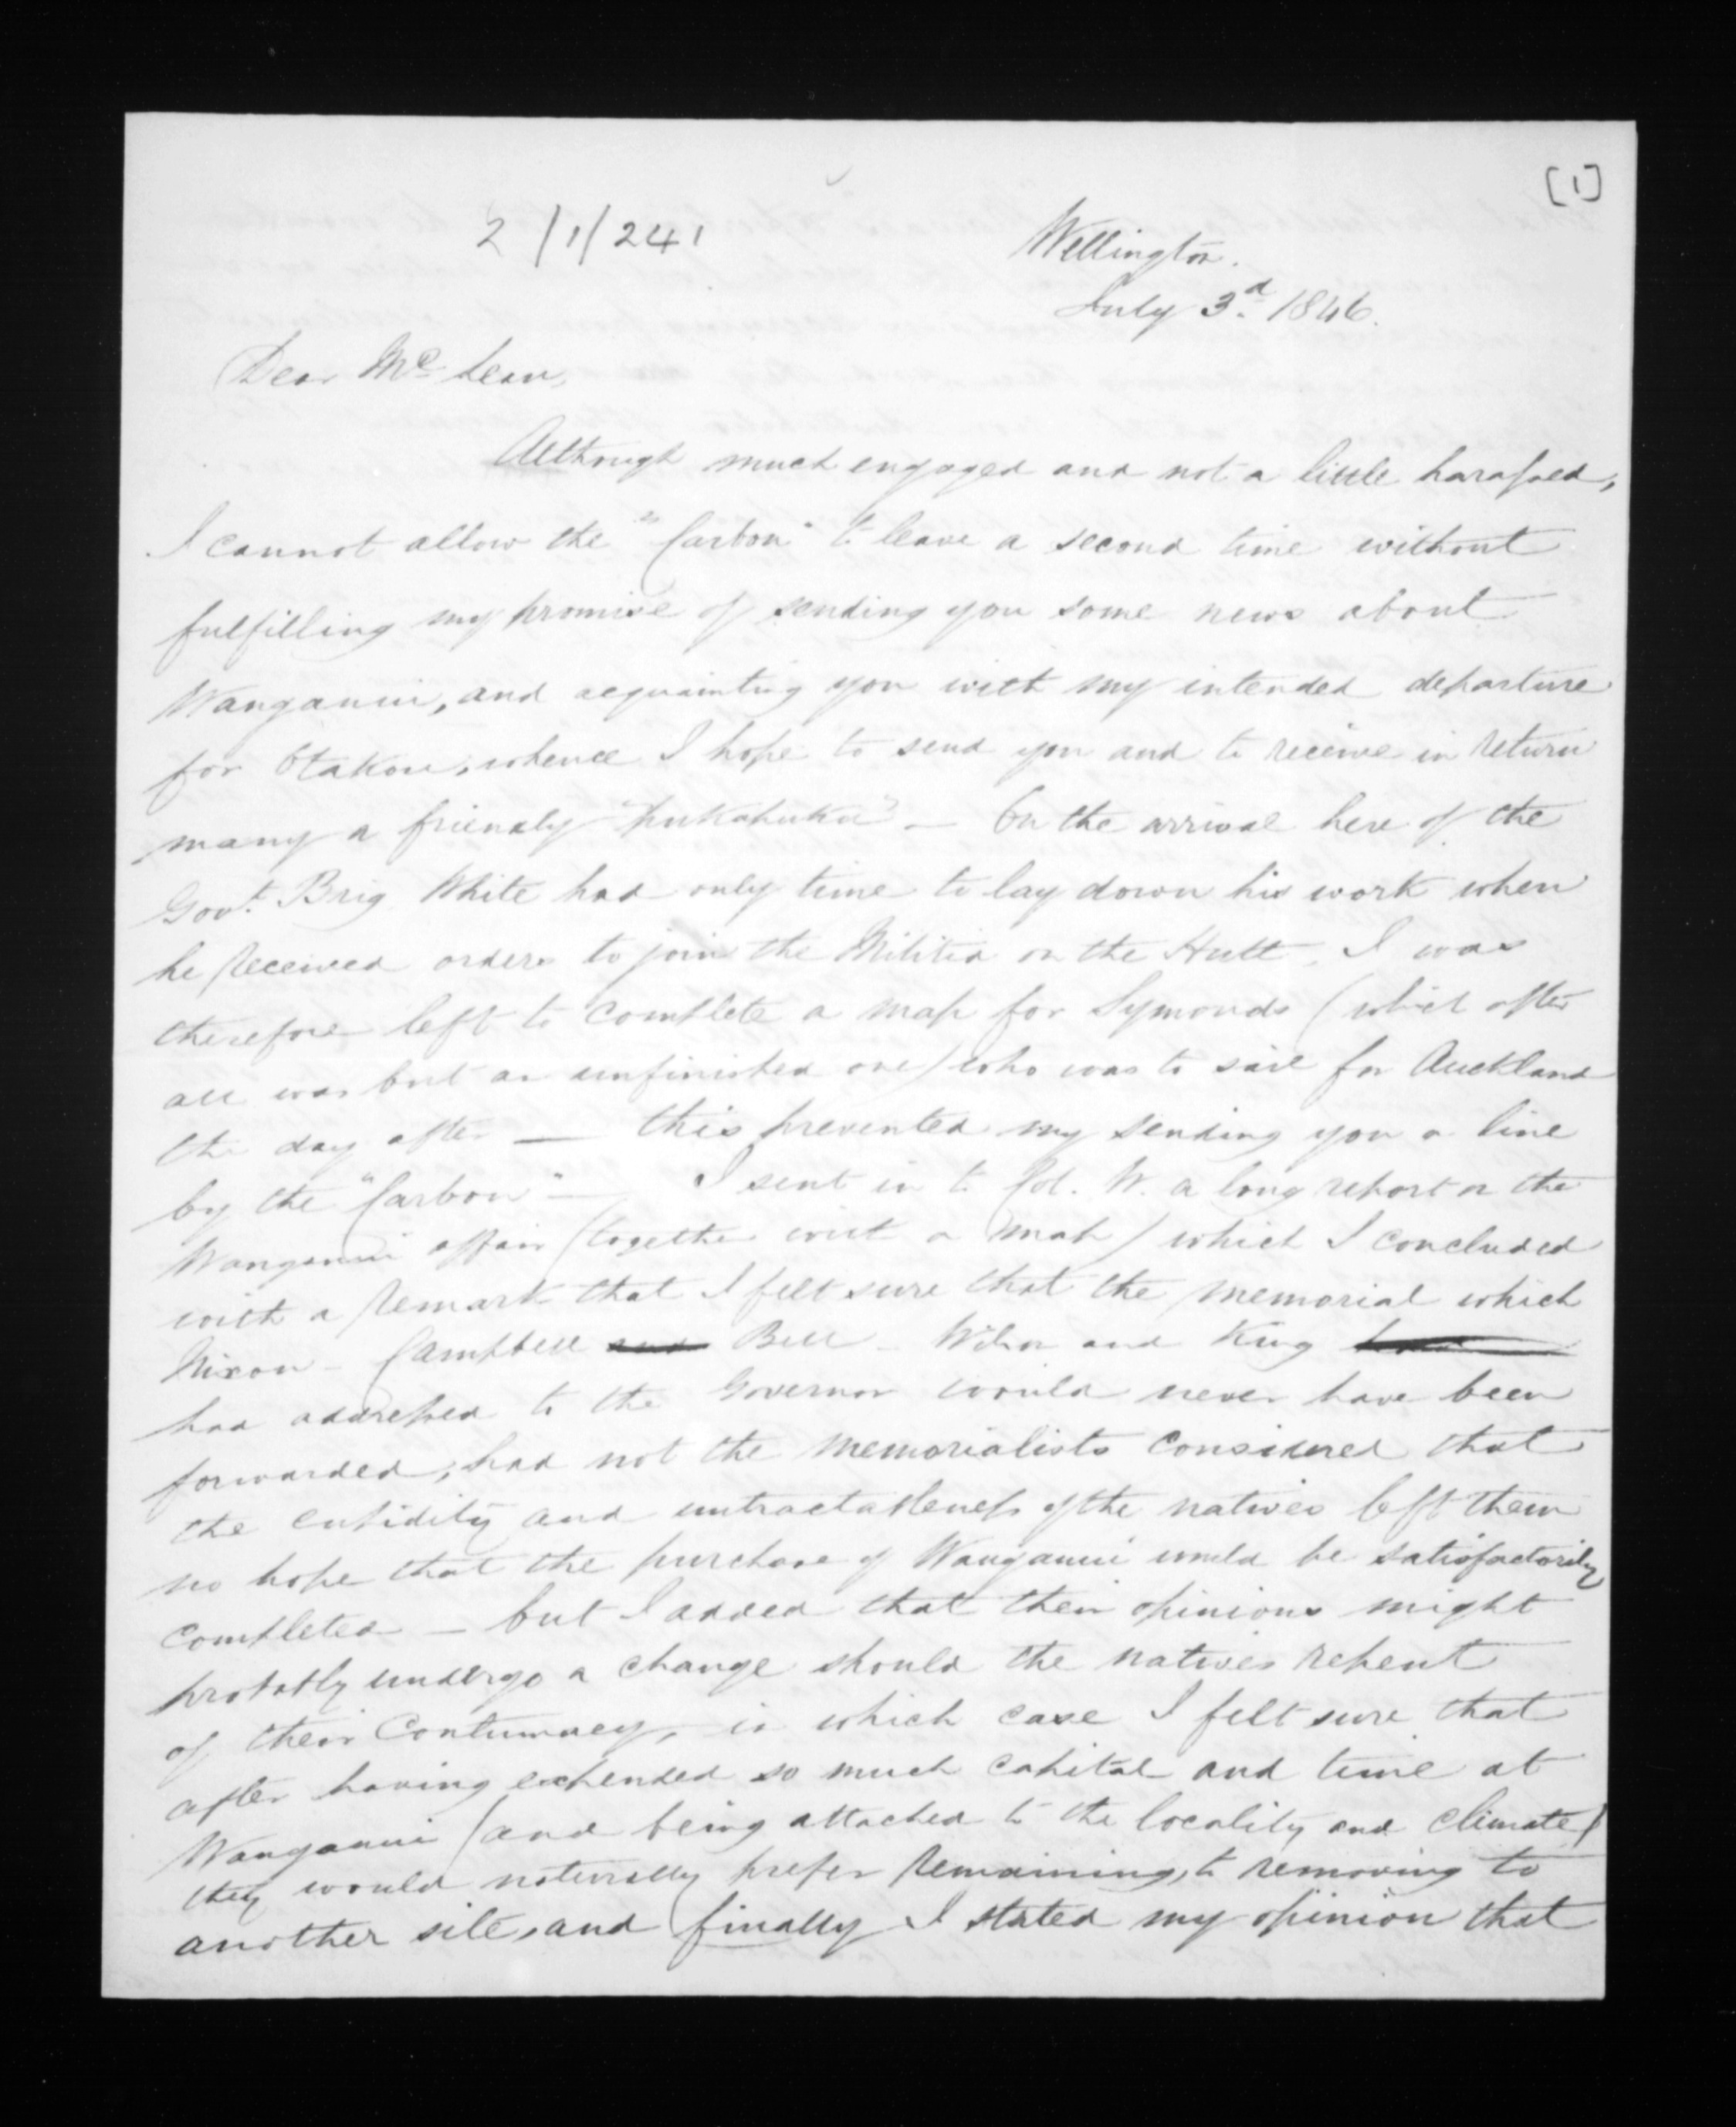 [1]
2/1/241
Wellington.
July 3d. 1846.
Dear McLean,
Although much engaged and not a little harassed,
I cannot allow the "Carbon" to leave a second time without
fulfilling my promise of sending you some news about
Wanganui, and acquainting you with my intended departure
for Otakou, whence I hope to send you and to receive in return
many a friendly "pukapuka" — On the arrival here of the
Govt. Brig White had only time to lay down his work when
he received orders to join the Militia on the Hutt. I was
therefore left to complete a map for Symonds (which after
all was but an unfinished one) who was to sail for Auckland
the day after — this prevented my sending you a line
by the "Carbon" — I sent in to Col. W. a long report on the
Wanganui affair (together with a map) which I concluded
with a remark that I felt sure that the memorial which
Nixon - Campbell and Bell - Wilson and King
had addressed to the Governor would never have been
forwarded, had not the memorialists considered that
the cupidity and untractableness of the natives left them
no hope that the purchase of Wanganui would be satisfactorily
completed — but I added that their opinions might
probably undergo a change should the natives repent
of their Contumacy, in which case I felt sure that
after having expended so much capital and time at
Wanganui (and being attached to the locality and climate)
they would naturally prefer remaining, to removing to
another site, and finally I stated my opinion that